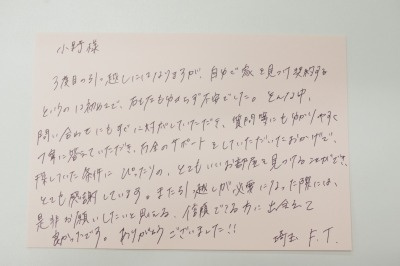 小野様
3度目の引っ越しにはなりますが、自分で家を見つけ契約する
というのは初めてで、右も左も分からず不安でした。そんな中、
問い合わせにもすぐに対応していただき、質問等にも分かりやすく
丁寧に答えていただき、万全のサポートをしていただいたおかげで、
探していた条件にぴったりの、とてもいいお部屋を見つけることができ、
とても感謝しています。また引っ越しが必要になった際には、
是非お願いしたいと思える、信頼できる方に出会えて
良かったです。ありがとうございました!!
埼玉 F.T.